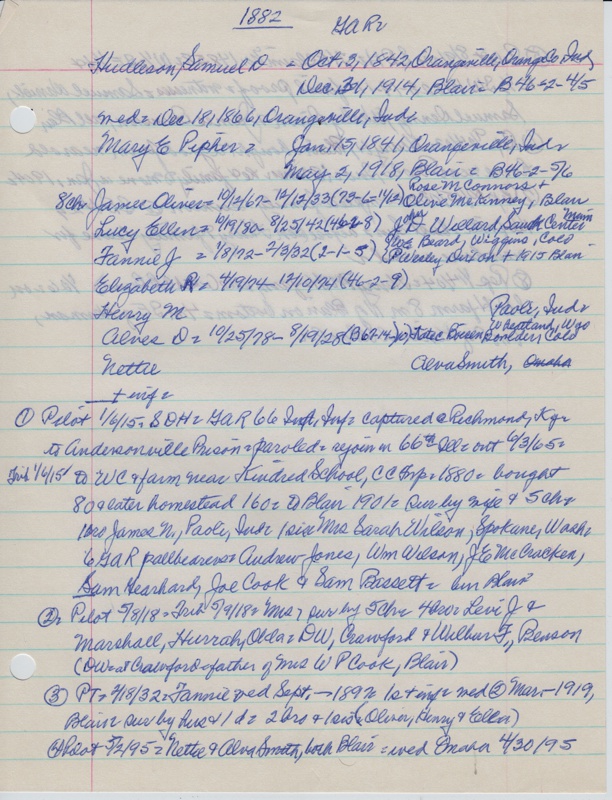 1882 GAR
Hudleson, Samuel D = Oct 3, 1842, Orangeville, Orange Co Ind,
Dec 31, 1914, Blair = B46-2-4/5
wed = Dec 18, 1866, Orangeville, Ind
Mary E Pipher = Jan 15, 1841, Orangeville, Ind
May 2, 1918, Blair = B46-2-5/6
Rose McConnors +
8 Ch James Oliver = 10/2/67 - 12/12/33 Olive McKinney, Blair
Lucy Ellen = 6/19/80 - 8/25/42 (46-2-8) J D Willard, Sauk Center Minn
Fannie J = 1/8/72 - 2/3/32 (2-1-5) Beard, Wiggins, Colo
Presley Dixon + 1915 Blair
Elizabeth R = 4/19/74 - 12/10/74 (46-2-9)
Henry M Paoli, Ind
Wheatland, Wyo
Alves D = 10/25/78 - 8/19/28 Boulder, Colo
Nettie Alva Smith, Omaha
+ inf =
① Pilot 1/6/15 = SDH = GAR 66 Inf, Ind = captured @ Richmond, Ky
to Andersonville Prison = paroled = rejoin 66th = out 6/3/65 =
Trib 1/6/15 to WC & farm near Kindred School, CC Tnp = 1880 = bought
80 & later homestead 160 = to Blair 1901 = sur by wife & 5 ch =
1 bro James N, Paoli, Ind = 1 sis Mrs Sarah Wilson, Spokane, Wash =
6 GAR pallbearers = Andrew Jones, Wm Wilson, J E McCracken,
Sam Gearhard, Joe Cook & Sam Bassett = bur Blair
② Pilot 5/8/18 = Trib 5/9/18 = Mrs, sur by 5 ch = 4 bro = Levi J &
Marshall, Hurrah, Okla = DW, Crawford & Wilbur F, Benson
(DW = at Crawford = father of Mrs W P Cook, Blair)
③ PT = 2/18/32 = Fannie wed Sept - 1892 = 1 s + inf = wed ② Mar - 1919,
Blair = sur by hus & 1 d = 2 bro & 1 sis (Oliver, Henry & Ellen)
④ Pilot 5/2/95 = Nettie & Alva Smith, both Blair = wed Omaha 4/30/95